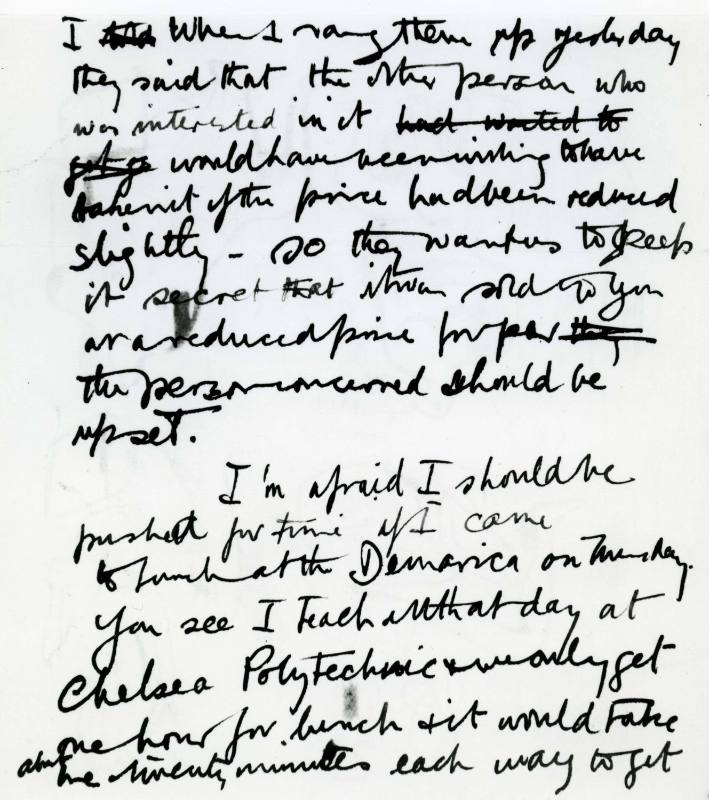 I ~~told~~ When I rang them up yesterday
they said that the other person who
was interested in it ~~had wanted to~~
~~get~~ would have been willing to have
taken it if the price had been reduced
slightly – so they want us to keep
it secret that it was sold to you
at a reduced price for fear ~~they~~
the person concerned should be
upset.
I'm afraid I should be
pushed for time if I came
to lunch at the on Thursday.
You see I teach all that day at
Chelsea Polytechnic & we only get
one hour for lunch & it would take
me about twenty minutes each way to get